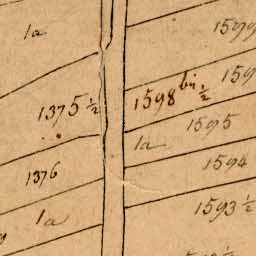 1a
1375 ½
1376
1a
1598 bis ½
1595
1a
1594
1593 ½